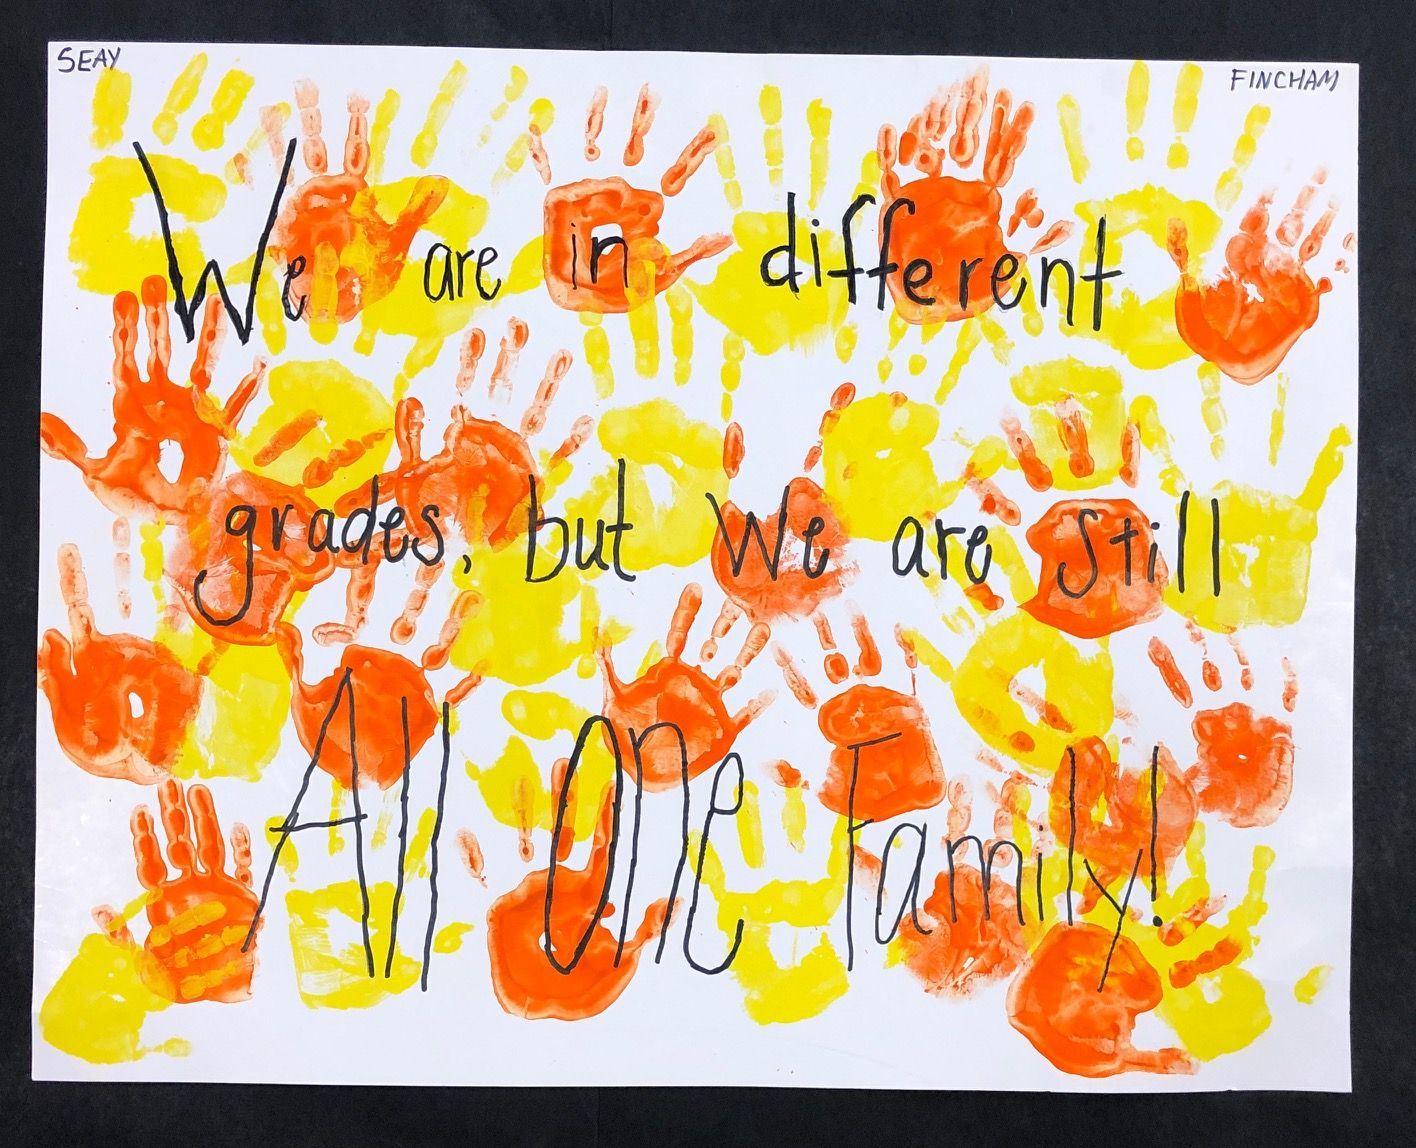 SEAY
FINCHAM
We are in different
grades, but we are still
All One Family!